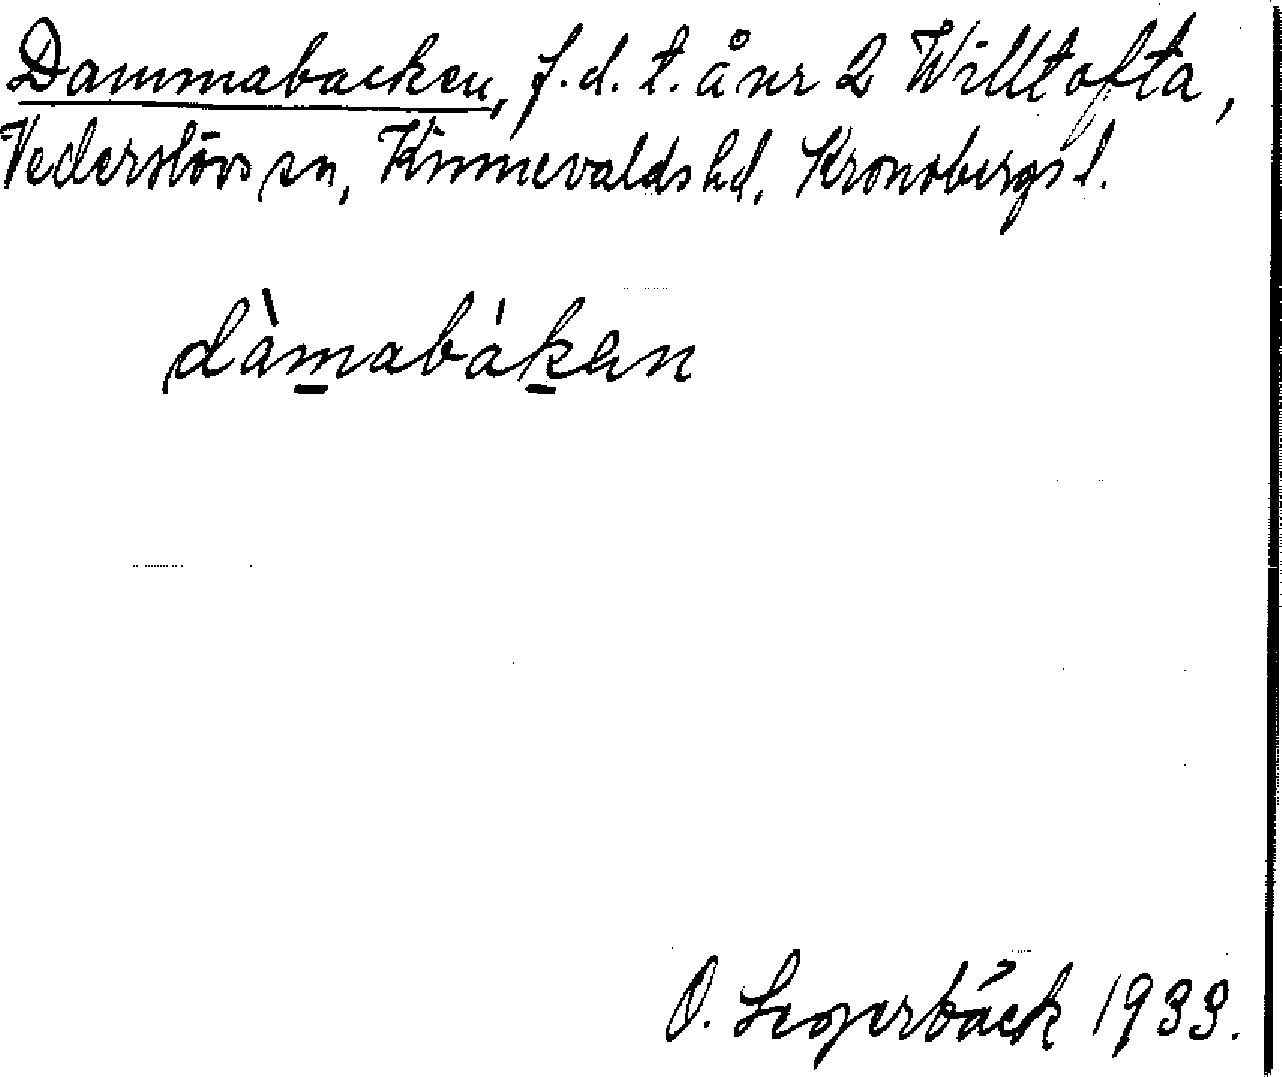 Dammabacken, f. d. t. å nr 2 Willtofta,
Vederslövs sn, Kinnevalds hd, Kronobergs l.
dàmabákan
O. Segerbäck 1933.